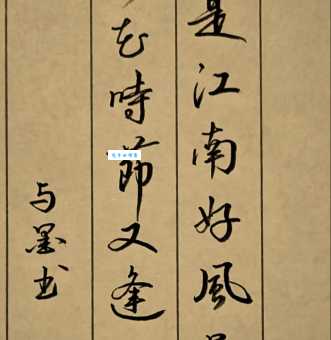 是江南好風
花時節又逢
与墨书